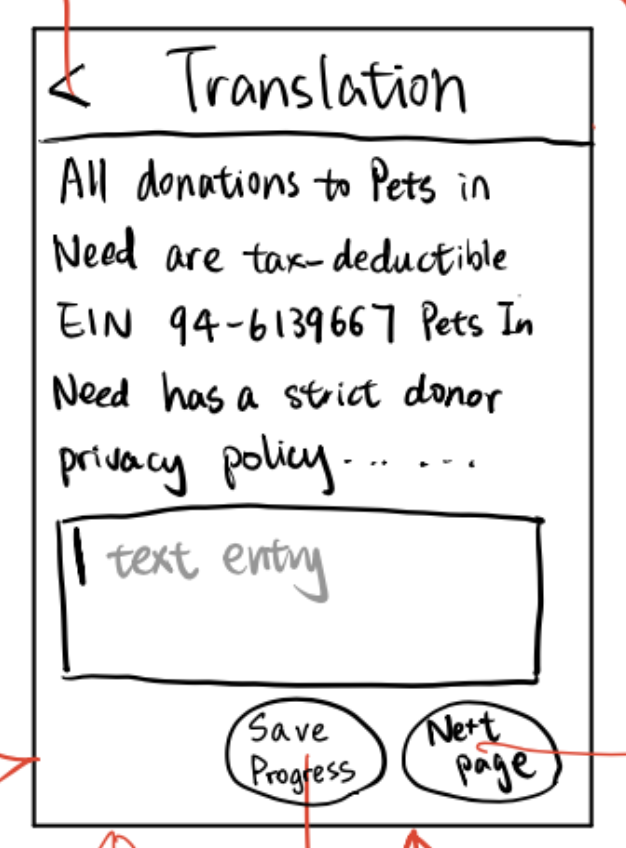 < Translation
All donations to Pets in
Need are tax-deductible
EIN 94-6139667 Pets In
Need has a strict donor
privacy policy.......
text entry
Save
Progress
Next
page